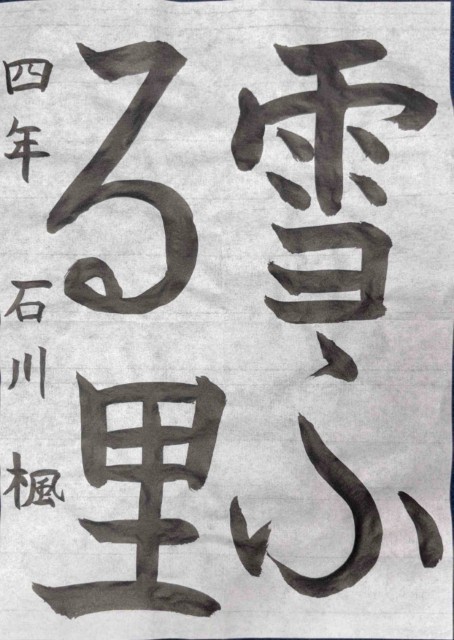 雪ふ
る里
四年 石川 楓